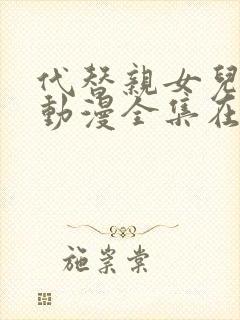 代替親女兒
動漫全集在
施崇棠